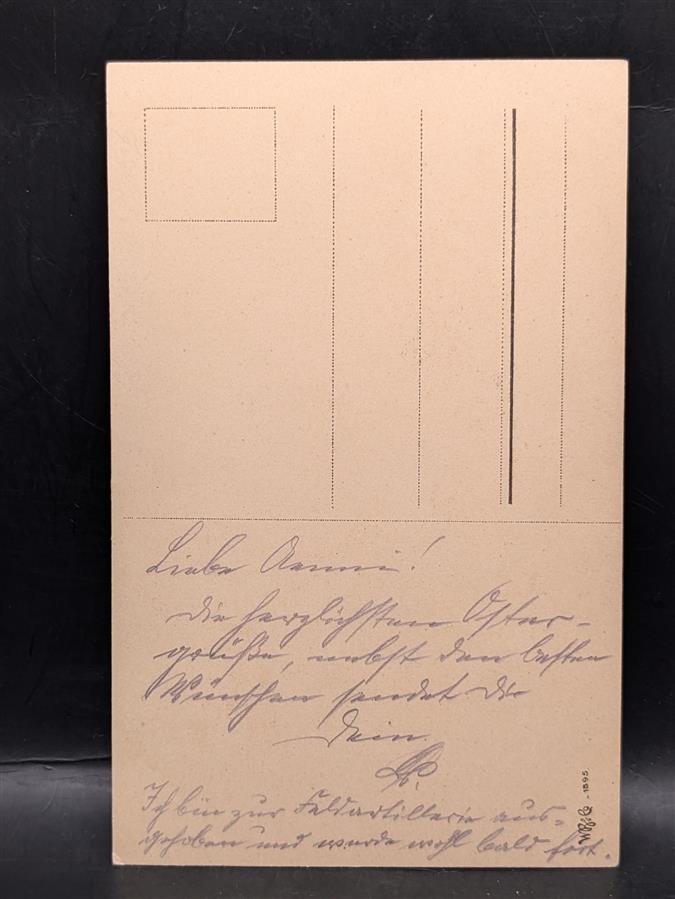 Liebe Aenni!
die herzlichsten Oster-
grüße, nebst den besten
Wünschen sendet Dir
Dein
Ich bin zur Feldartillerie aus=
gehoben und werde wohl bald fort.
1895